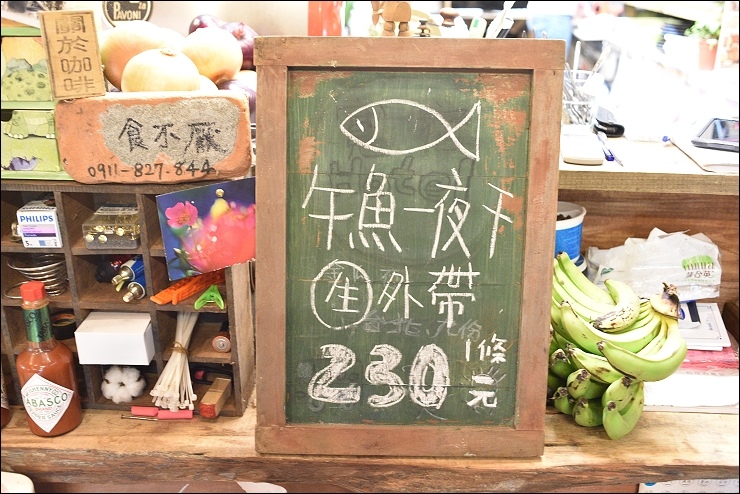 PAVONI
關於咖啡
食不厭
0911-827.844
PHILIPS
TABASCO
午魚一夜干
生外帶
230 1條元